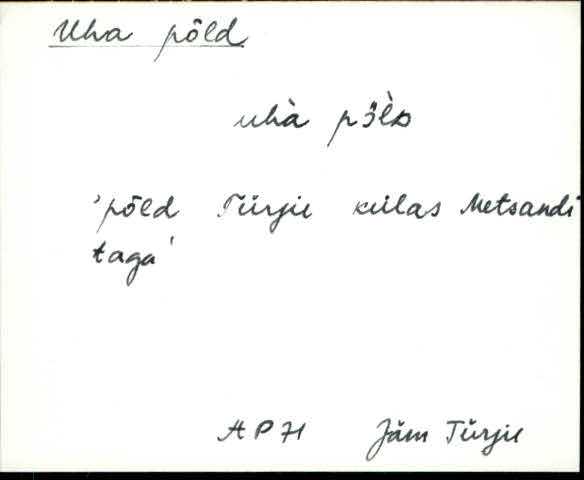 Uha põld
uhà pɜ̈̀lᴅ
'põld Türju külas Metsandi
taga'
APH Jäm Türju